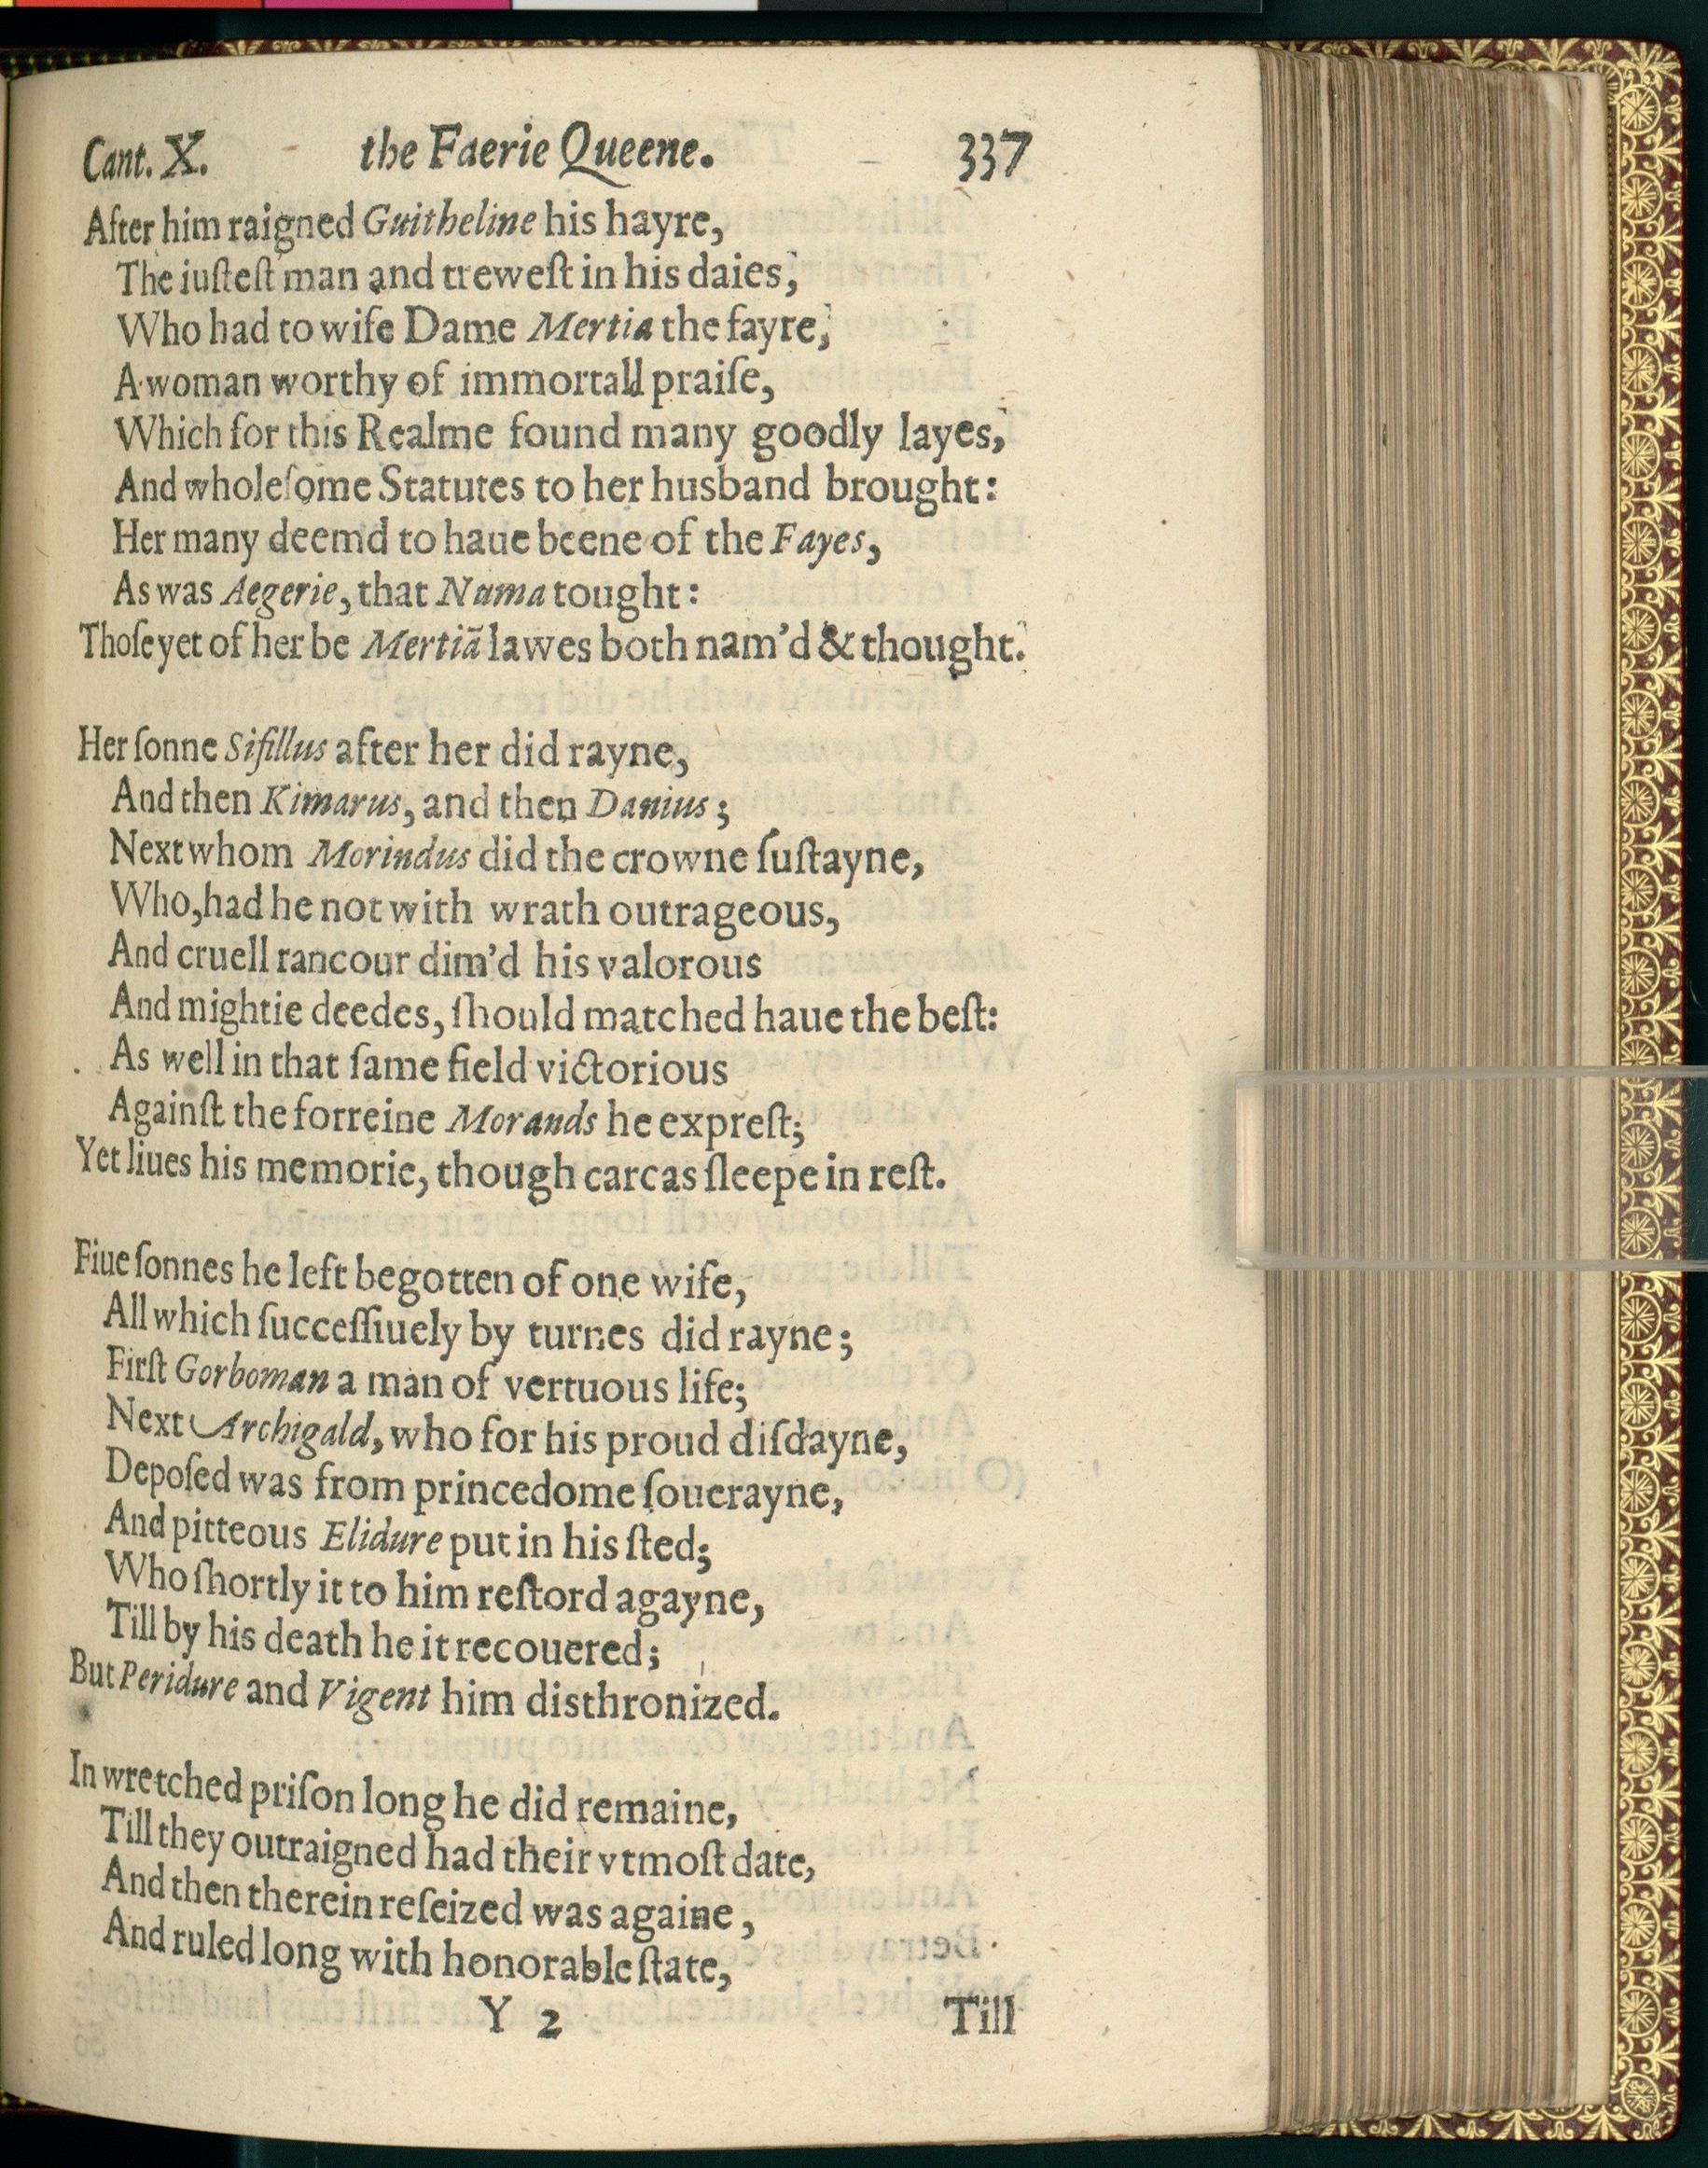 Cant. X. the Faerie Queene. 337
After him raigned Guitheline his hayre,
The iuſteſt man and treweſt in his daies,
Who had to wife Dame Mertia the fayre,
A woman worthy of immortall praiſe,
Which for this Realme found many goodly layes,
And wholeſome Statutes to her husband brought:
Her many deemd to haue beene of the Fayes,
As was Aegerie, that Numa tought:
Thoſe yet of her be Mertiā lawes both nam'd & thought.
Her ſonne Siſillus after her did rayne,
And then Kimarus, and then Danius;
Next whom Morindus did the crowne ſuſtayne,
Who, had he not with wrath outrageous,
And cruell rancour dim'd his valorous
And mightie deedes, ſhould matched haue the beſt:
As well in that ſame field victorious
Againſt the forreine Morands he expreſt;
Yet liues his memorie, though carcas ſleepe in reſt.
Fiue ſonnes he left begotten of one wife,
All which ſucceſſiuely by turnes did rayne;
Firſt Gorboman a man of vertuous life;
Next Archigald, who for his proud diſdayne,
Depoſed was from princedome ſouerayne,
And pitteous Elidure put in his ſted;
Who ſhortly it to him reſtord agayne,
Till by his death he it recouered;
But Peridure and Vigent him disthronized.
In wretched priſon long he did remaine,
Till they outraigned had their vtmoſt date,
And then therein reſeized was againe,
And ruled long with honorable ſtate,
Y 2 Till